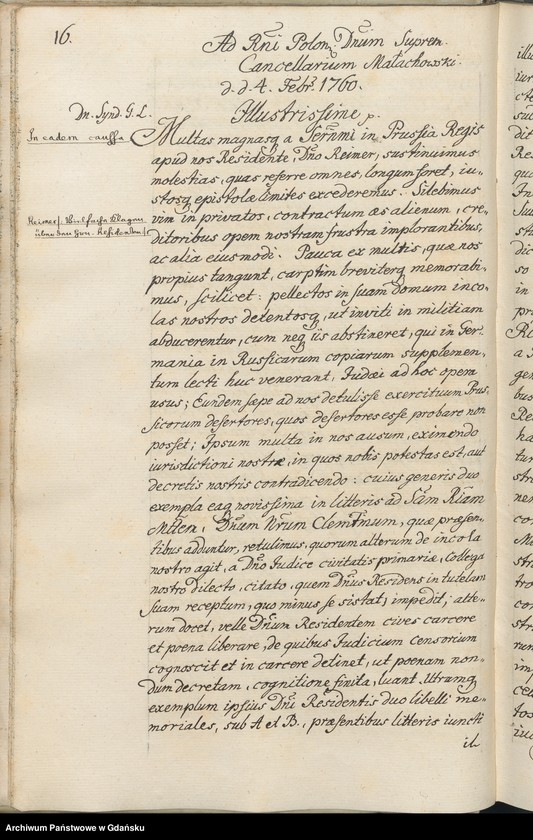 16.
Ad Rñi Polon: Dñum Suprem.
Cancellarium Małachowski.
d. d. 4. Febr. 1760.
Dn. Synd. G. L.
Illustrissime p.
In eadem caussa
Multas magnasq a Serñmi in Prussia Regis
apud nos Residente, Dño Reimer, sustinuimus
molestias, quas referre omnes, longum foret, iu-
stosq epistolæ limites excederemus. Silebimus
vim in privatos, contractum æs alienum, cre-
ditoribus opem nostram frustra implorantibus,
ac alia eiusmodi. Pauca ex multis, quæ nos
propius tangunt, carptim breviterq memorabi-
mus, scilicet: pellectos in suam domum inco-
las nostros detentosq, ut inviti in militiam
abducerentur, cum neq iis abstineret, qui in Ger-
mania in Russicarum copiarum supplemen-
tum lecti huc venerant, Judæi ad hoc opera
usus; Eundem sæpe ad nos detulisse exercituum Prus-
sicorum desertores, quos desertores esse probare non
posset; Ipsum multa in nos ausum, eximendo
iurisdictioni nostræ, in quos nobis potestas est, aut
decretis nostris contradicendo: cuius generis duo
exempla eaq novissima in litteris ad Sam Riam
Mttem, Dñum Nrum Clemtmum, quæ præsen-
tibus adduntur, retulimus, quorum alterum de incola
nostro agit, a Dño Judice civitatis primariæ, Collega
nostro dilecto, citato, quem Dñus Residens in tutelam
suam receptum, quo minus se sistat, impedit; alte-
rum docet, velle Dñum Residentem cives carcere
et poena liberare, de quibus Judicium censorium
cognoscit et in carcere detinet, ut poenam non-
dum decretam, cognitione finita, luant. Utramq
exemplum ipsius Dñi Residentis duo libelli me-
moriales, sub A et B., præsentibus litteris iuncti
il
Archiwum Państwowe w Gdańsku